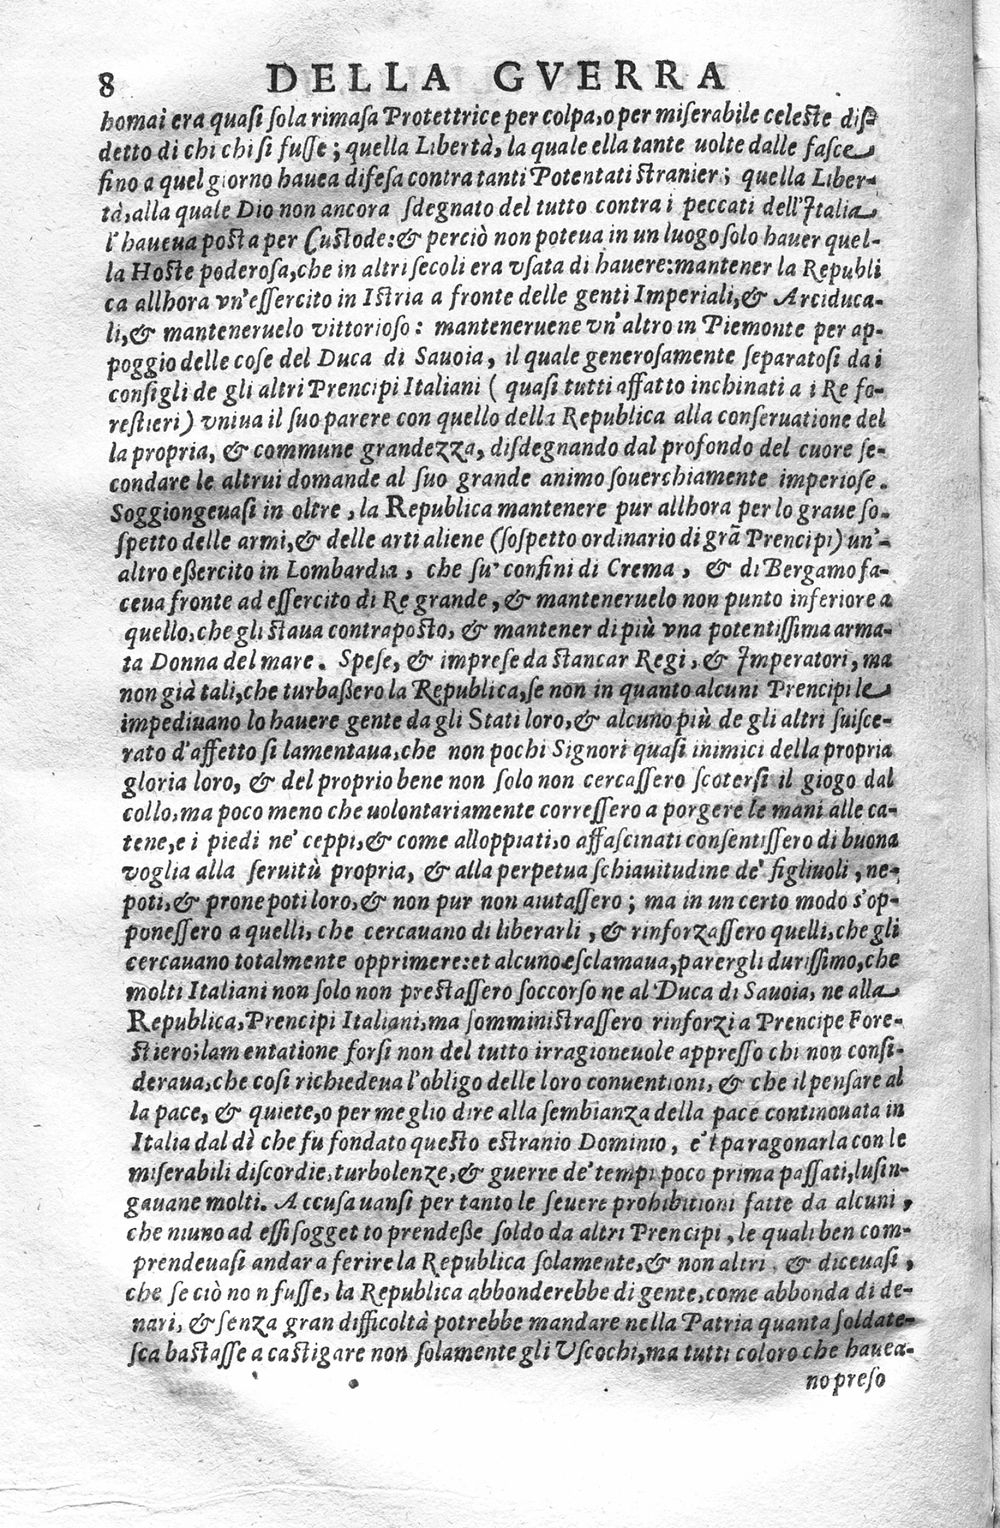 8 DELLA GVERRA
homai era quasi sola rimasa Protettrice per colpa, o per miserabile celeste dis-
detto di chi chi si fusse; quella Libertà, la quale ella tante uolte dalle fasce
fino a quel giorno hauea difesa contra tanti Potentati stranier; quella Liber-
tà, alla quale Dio non ancora sdegnato del tutto contra i peccati dell'Italia,
l'haueua posta per Custode: & perciò non poteua in un luogo solo hauer quel-
la Hoste poderosa, che in altri secoli era vsata di hauere: mantener la Republi
ca allhora vn'essercito in Istria a fronte delle genti Imperiali, & Arciduca-
li, & manteneruelo vittorioso: manteneruene vn'altro in Piemonte per ap-
poggio delle cose del Duca di Sauoia, il quale generosamente separatosi da i
consigli de gli altri Prencipi Italiani ( quasi tutti affatto inchinati a i Re fo-
restieri ) vniua il suo parere con quello della Republica alla conseruatione del
la propria, & commune grandezza, disdegnando dal profondo del cuore se-
condare le altrui domande al suo grande animo souerchiamente imperiose.
Soggiongeuasi in oltre, la Republica mantenere pur allhora per lo graue so-
spetto delle armi, & delle arti aliene (sospetto ordinario di grã Prencipi) un'-
altro eßercito in Lombardia, che su' confini di Crema, & di Bergamo fa-
ceua fronte ad essercito di Re grande, & manteneruelo non punto inferiore a
quello, che gli staua contraposto, & mantener di più vna potentissima arma-
ta Donna del mare. Spese, & imprese da stancar Regi, & Imperatori, ma
non già tali, che turbaßero la Republica, se non in quanto alcuni Prencipi le
impediuano lo hauere gente da gli Stati loro, & alcuno più de gli altri suisce-
rato d'affetto si lamentaua, che non pochi Signori quasi inimici della propria
gloria loro, & del proprio bene non solo non cercassero scotersi il giogo dal
collo, ma poco meno che uolontariamente corressero a porgere le mani alle ca-
tene, e i piedi ne' ceppi, & come alloppiati, o affascinati consentissero di buona
voglia alla seruitù propria, & alla perpetua schiauitudine de' figliuoli, ne-
poti, & pronepoti loro, & non pur non aiutassero; ma in un certo modo s'op-
ponessero a quelli, che cercauano di liberarli, & rinforzassero quelli, che gli
cercauano totalmente opprimere: et alcuno esclamaua, parergli durissimo, che
molti Italiani non solo non prestassero soccorso ne al Duca di Sauoia, ne alla
Republica, Prencipi Italiani, ma somministrassero rinforzi a Prencipe Fore-
stiero; lamentatione forsi non del tutto irragioneuole appresso chi non consi-
deraua, che cosi richiedeua l'obligo delle loro conuentioni, & che il pensare al
la pace, & quiete, o per meglio dire alla sembianza della pace continouata in
Italia dal dì che fu fondato questo estranio Dominio, e't paragonarla con le
miserabili discordie, turbolenze, & guerre de' tempi poco prima passati, lusin-
gauane molti. Accusauansi per tanto le seuere prohibitioni fatte da alcuni,
che niuno ad essi soggetto prendeße soldo da altri Prencipi, le quali ben com-
prendeuasi andar a ferire la Republica solamente, & non altri. & diceuasi,
che se ciò non fusse, la Republica abbonderebbe di gente, come abbonda di de-
nari, & senza gran difficoltà potrebbe mandare nella Patria quanta soldate-
sca bastasse a castigare non solamente gli Vscochi, ma tutti coloro che hauea-
no preso